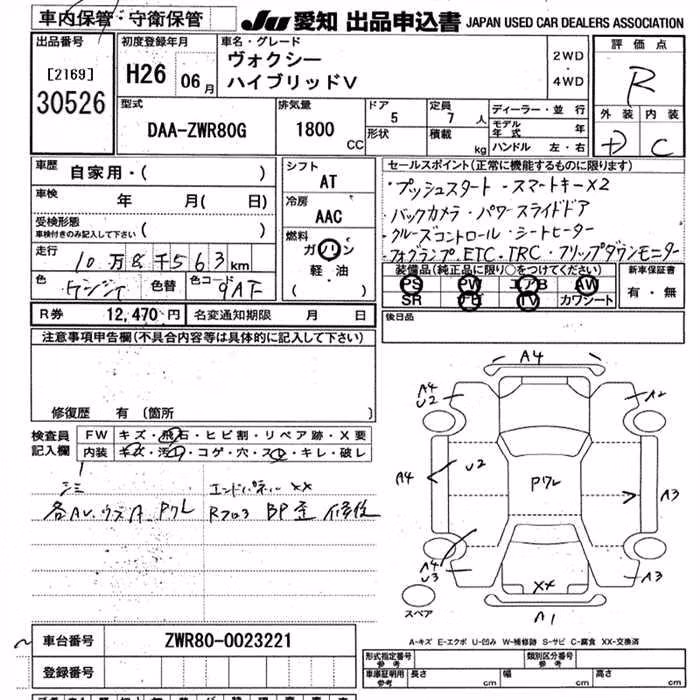 車内保管・守衛保管
JU 愛知 出品申込書 JAPAN USED CAR DEALERS ASSOCIATION
出品番号
[2169]
30526
初度登録年月
H26 06月
車名・グレード
ヴォクシー
ハイブリッドV
2WD
・
4WD
評価点
R
外装 内装
D C
型式
DAA-ZWR80G
排気量
1800 CC
ドア
5
形状
定員
7 人
積載
kg
ディーラー・並行
モデル年式 年
ハンドル 左・右
車歴
自家用・( )
車検
年 月( 日)
受検形態
車検付きのみ記入して下さい ( )
走行
10万8千563km
色
色替
色コード
9AF
シフト
AT
冷房
AAC
燃料
ガソリン
軽・油
( )
セールスポイント(正常に機能するものに限ります)
・プッシュスタート・スマートキー×2
・バックカメラ・パワースライドドア
・クルーズコントロール・シートヒーター
・フォグランプ・ETC・TRC・フリップダウンモニター
装備品(純正品に限り○をつけてください)
PS PW エアB AW
SR ナビ TV カワシート
新車保証書
有・無
R券 12,470円 名変通知期限 月 日
後日品
注意事項申告欄(不具合内容等は具体的に記入して下さい)
修復歴 有(箇所 )
検査員
記入欄
FW キズ・飛石・ヒビ割・リペア跡・X要
内装 キズ・汚れ・コゲ・穴・スレ・キレ・破レ
シミ エンドパネル XX
各AU.ウスA Pワレ Rフロア BP歪 修復
A4
A4
U2
A2
A4
U2
Pワレ
A3
A4
U3
XX
A3
A1
スペア
A-キズ E-エクボ U-凹み W-補修跡 S-サビ C-腐食 XX-交換済
車台番号 ZWR80-0023221
登録番号
形式指定番号
参考
類別区分番号
参考
車庫証明用
参考
長さ cm 幅 cm 高さ cm